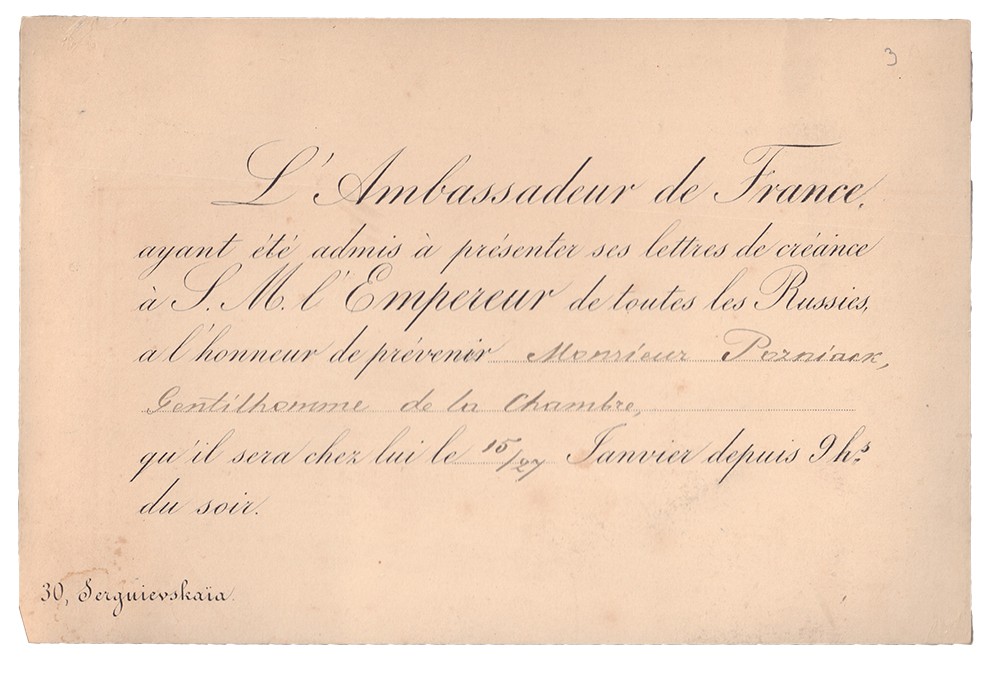 3
L'Ambassadeur de France,
ayant été admis à présenter ses lettres de créance
à S. M. l'Empereur de toutes les Russies,
a l'honneur de prévenir Monsieur Pozniack,
Gentilhomme de la Chambre,
qu'il sera chez lui le 15/27 Janvier depuis 9 hs.
du soir.
30, Serguievskaïa.